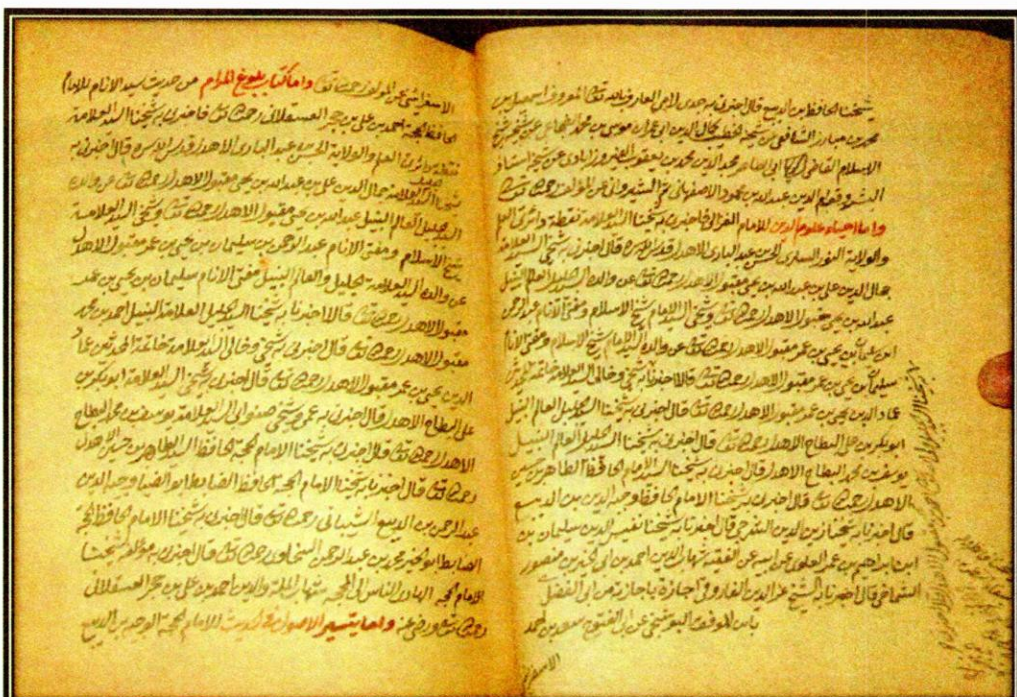 شيخنا الحافظ بن الديبع قال اخبرني به جدي لامي العارف بالله تعالى المعروف اسمعيل بن
محمد بن مبارز الشافعي عن شيخه الخطيب كمال الدين ابي عمران موسى بن محمد الضجاعي عن شيخه شيخ
الاسلام القاضي ابي الطاهر مجد الدين محمد بن يعقوب الفيروزابادي عن شيخه استاد
الدين عبد الله بن محمود الاصفهاني ثم الشيرواني عن المؤلف رحمه الله تعالى
واما احياء علوم الدين للامام الغزالي فاخبرني به شيخنا السيد العلامة نقطة دائرة العلم
والولاية النور الساري الحسن بن عبد الباري الاهدل قدس الله سره قال اخبرني به شيخي السيد العلامة
جمال الدين علي بن عبد الله بن يحيى مقبول الاهدل رحمه الله تعالى عن والده السيد الجليل العالم النبيل
عبد الله بن يحيى مقبول الاهدل رحمه الله تعالى وشيخي السيد الامام شيخ الاسلام ومفتي الانام عبد الرحمن
ابن سليمان بن يحيى بن عمر مقبول الاهدل رحمه الله تعالى عن والده السيد الامام شيخ الاسلام ومفتي الانام
سليمان بن يحيى بن عمر مقبول الاهدل رحمه الله تعالى قالا اخبرنا به شيخي وخالي السيد العلامة خاتمة المحدثين
عماد الدين يحيى بن عمر مقبول الاهدل رحمه الله تعالى قال اخبرني به شيخنا السيد الجليل العالم النبيل
ابو بكر بن علي البطاح الاهدل رحمه الله تعالى قال اخبرني به شيخنا السيد الجليل العالم النبيل
يوسف بن محمد البطاح الاهدل قال اخبرني به شيخنا السيد الامام الحافظ الطاهر بن حسين
الاهدل رحمه الله تعالى قال اخبرني به شيخنا الامام الحافظ وجيه الدين بن الديبع
قال اخبرنا به شيخنا زين الدين الشرجي قال اخبرنا به شيخنا نفيس الدين سليمان بن
ابراهيم بن عمر العلوي عن ابيه عن الفقيه شهاب الدين احمد بن ابي الخير بن منصور
الشماخي قال اخبرنا به الشيخ عز الدين الفاروثي اجازة باجازته من ابي الفضل
بن الموفق البوشنجي عن ابي الفتوح سعود بن احمد
الاسفرايني
الاسفرايني عن المؤلف رحمه الله تعالى واما كتاب بلوغ المرام من حديث سيد الانام للامام
الحافظ الحجة احمد بن علي بن حجر العسقلاني رحمه الله تعالى فاخبرني به شيخنا السيد العلامة
نقطة دائرة العلم والولاية الحسن بن عبد الباري الاهدل قدس الله سره قال اخبرني به
شيخنا السيد العلامة جمال الدين علي بن عبد الله بن يحيى مقبول الاهدل رحمه الله تعالى عن والده
السيد الجليل العالم النبيل عبد الله بن يحيى مقبول الاهدل رحمه الله تعالى وشيخي السيد العلامة
شيخ الاسلام ومفتي الانام عبد الرحمن بن سليمان بن يحيى بن عمر مقبول الاهدل
عن والده السيد العلامة الجليل والعالم النبيل مفتي الانام سليمان بن يحيى بن عمر
مقبول الاهدل رحمه الله تعالى قالا اخبرنا به شيخنا السيد الجليل العلامة النبيل احمد بن محمد
مقبول الاهدل رحمه الله تعالى قال اخبرني به شيخي وخالي السيد العلامة خاتمة المحدثين عماد
الدين يحيى بن عمر مقبول الاهدل رحمه الله تعالى قال اخبرني به شيخي السيد العلامة ابو بكر بن
علي البطاح الاهدل قال اخبرني به عمي وشيخي صنو ابي السيد العلامة يوسف بن محمد البطاح
الاهدل رحمه الله تعالى قال اخبرني به شيخنا الامام الحجة الحافظ السيد الطاهر بن حسين الاهدل
رحمه الله تعالى قال اخبرنا به شيخنا الامام الحجة الحافظ الضابط ابو الضيا وجيه الدين
عبد الرحمن بن الديبع الشيباني رحمه الله تعالى قال اخبرني به شيخنا الامام الحافظ الحجة
الضابط ابو الخير محمد بن عبد الرحمن السخاوي رحمه الله تعالى قال اخبرني به مؤلفه شيخنا
الامام الحجة الهادي الناس الى المحجة شهاب الملة والدين احمد بن علي بن حجر العسقلاني
رحمه الله تعالى ورضي عنه واما تيسير الاصول في الحديث للامام الحجة الوجيه بن الديبع